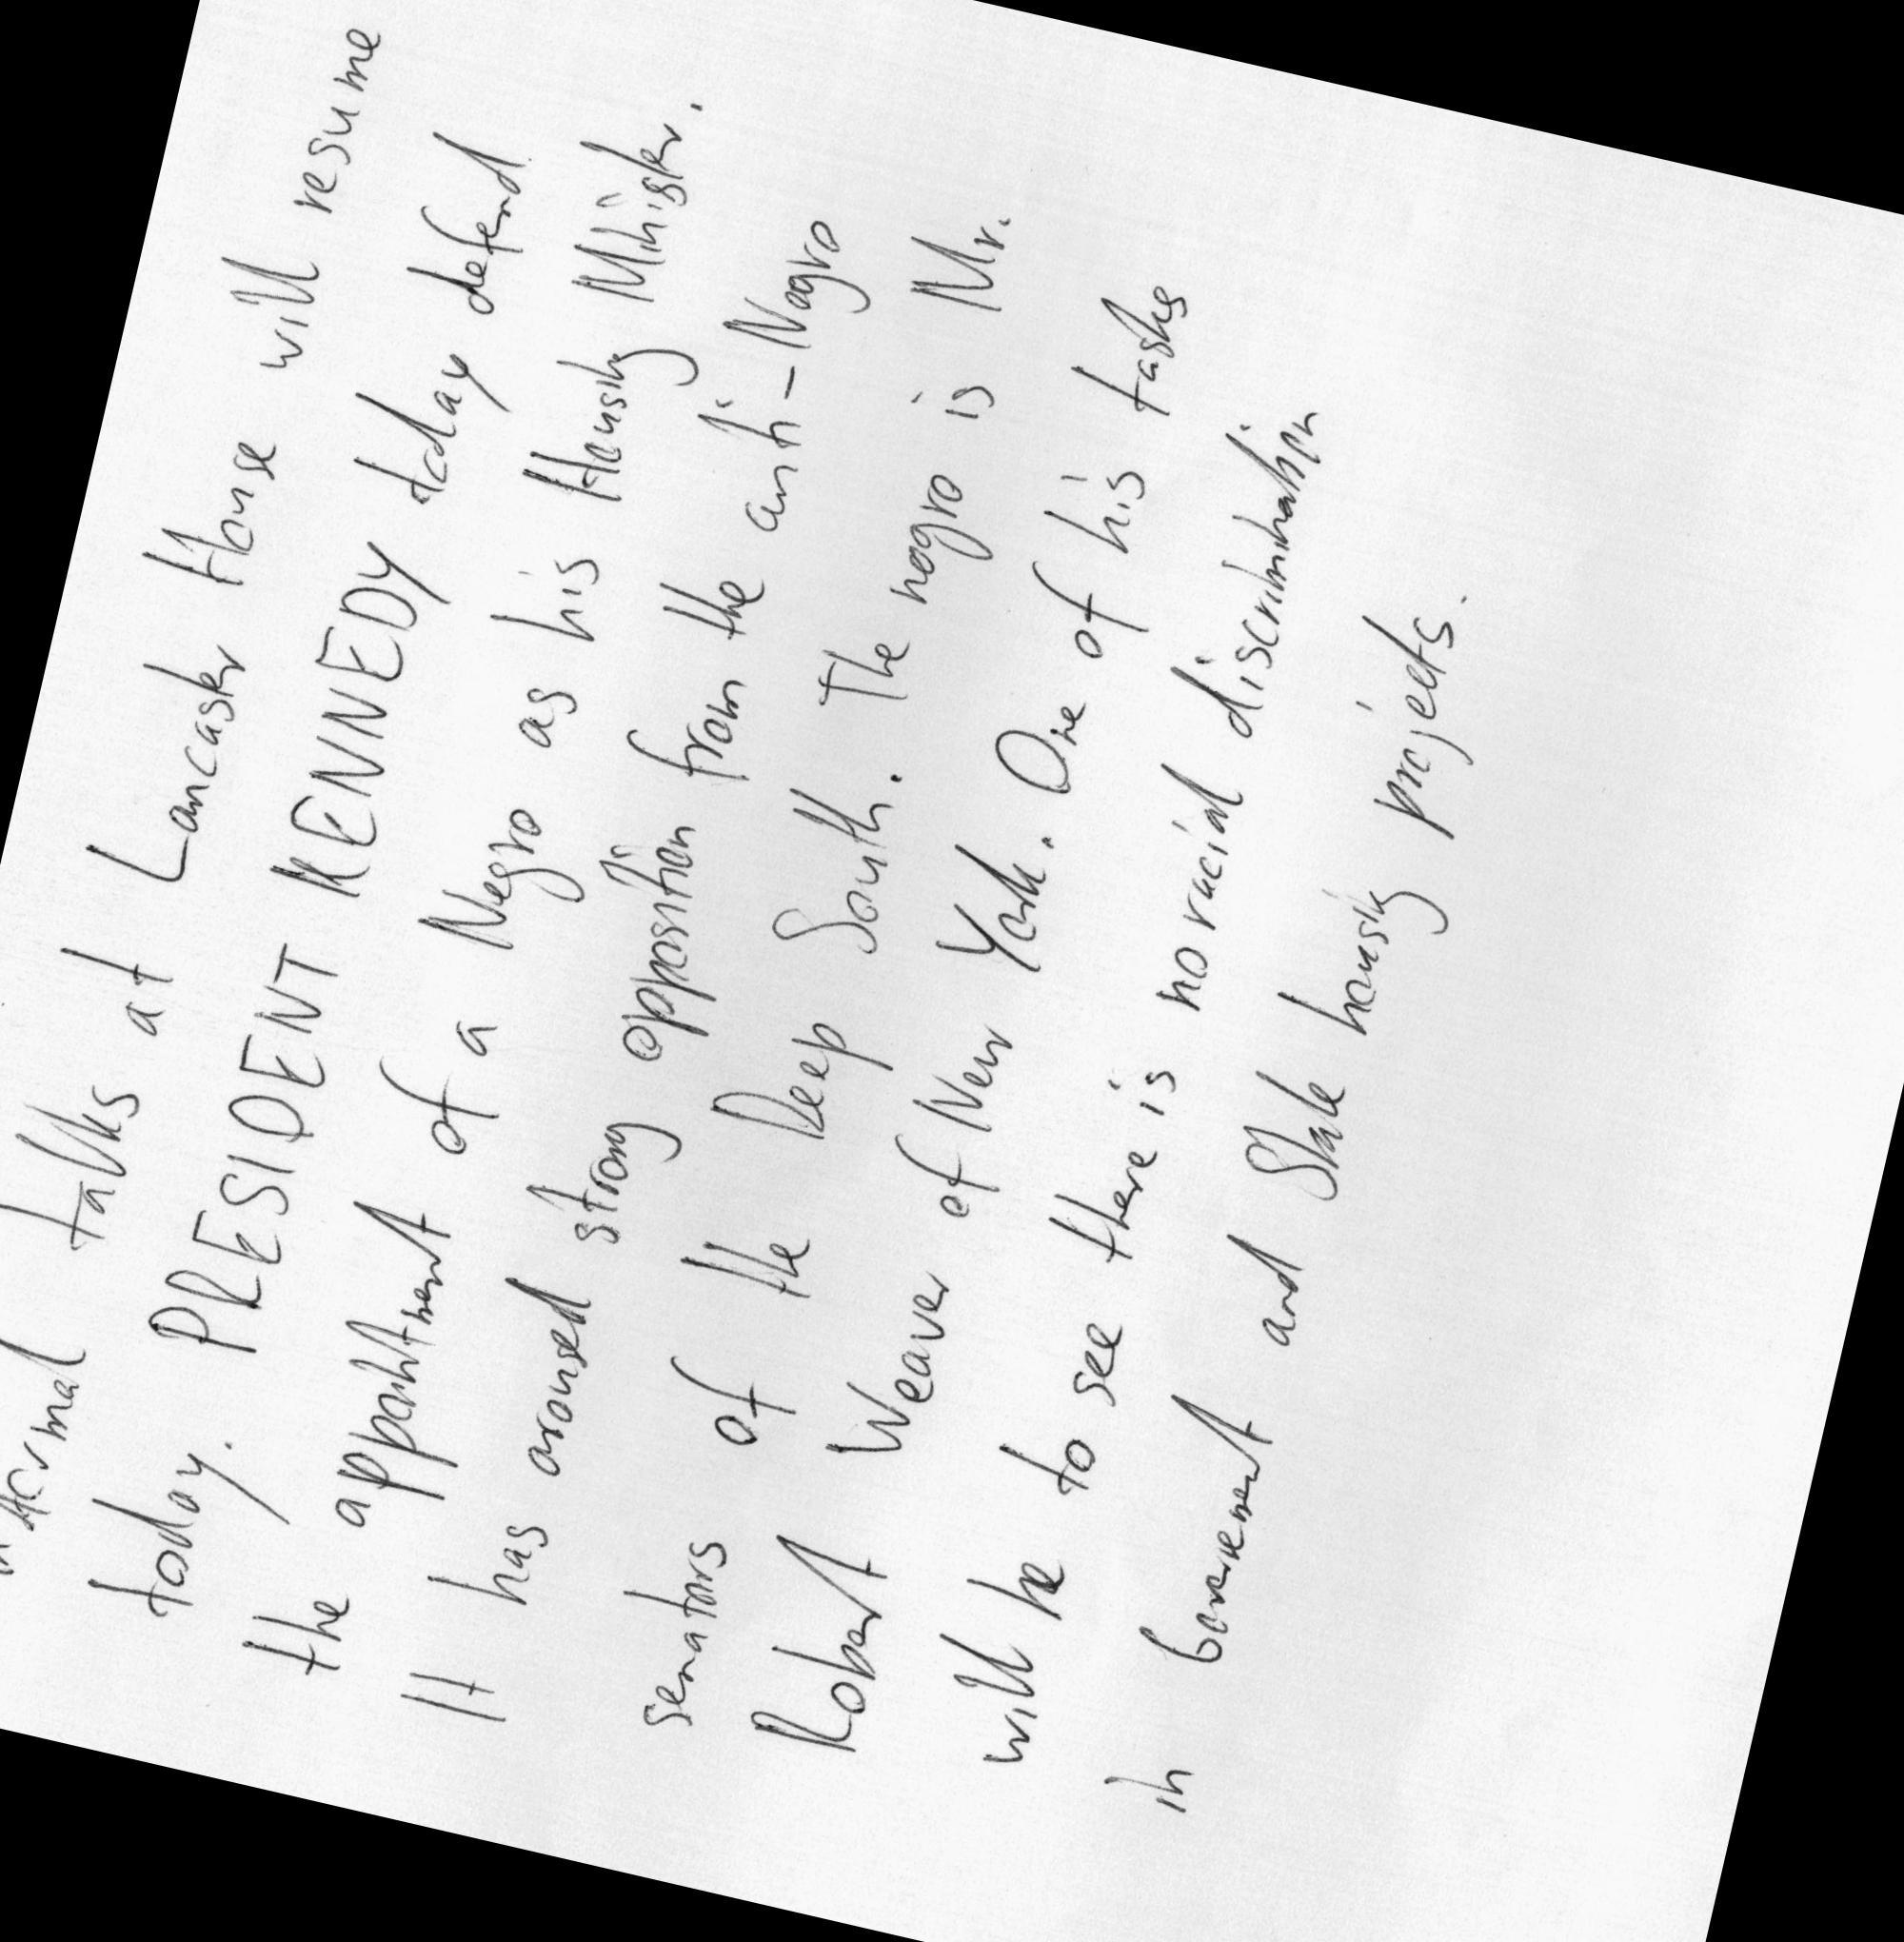 informal talks at Lancaster House will resume
today. PRESIDENT KENNEDY today defend
the appointment of a Negro as his Housing Minister.
It has aroused strong opposition from the anti-Nagro
senators of the Deep South. The nagro is Mr.
Robert Weaver of New York. One of his tasks
will be to see there is no racial discrimination
in Government and State housing projects.